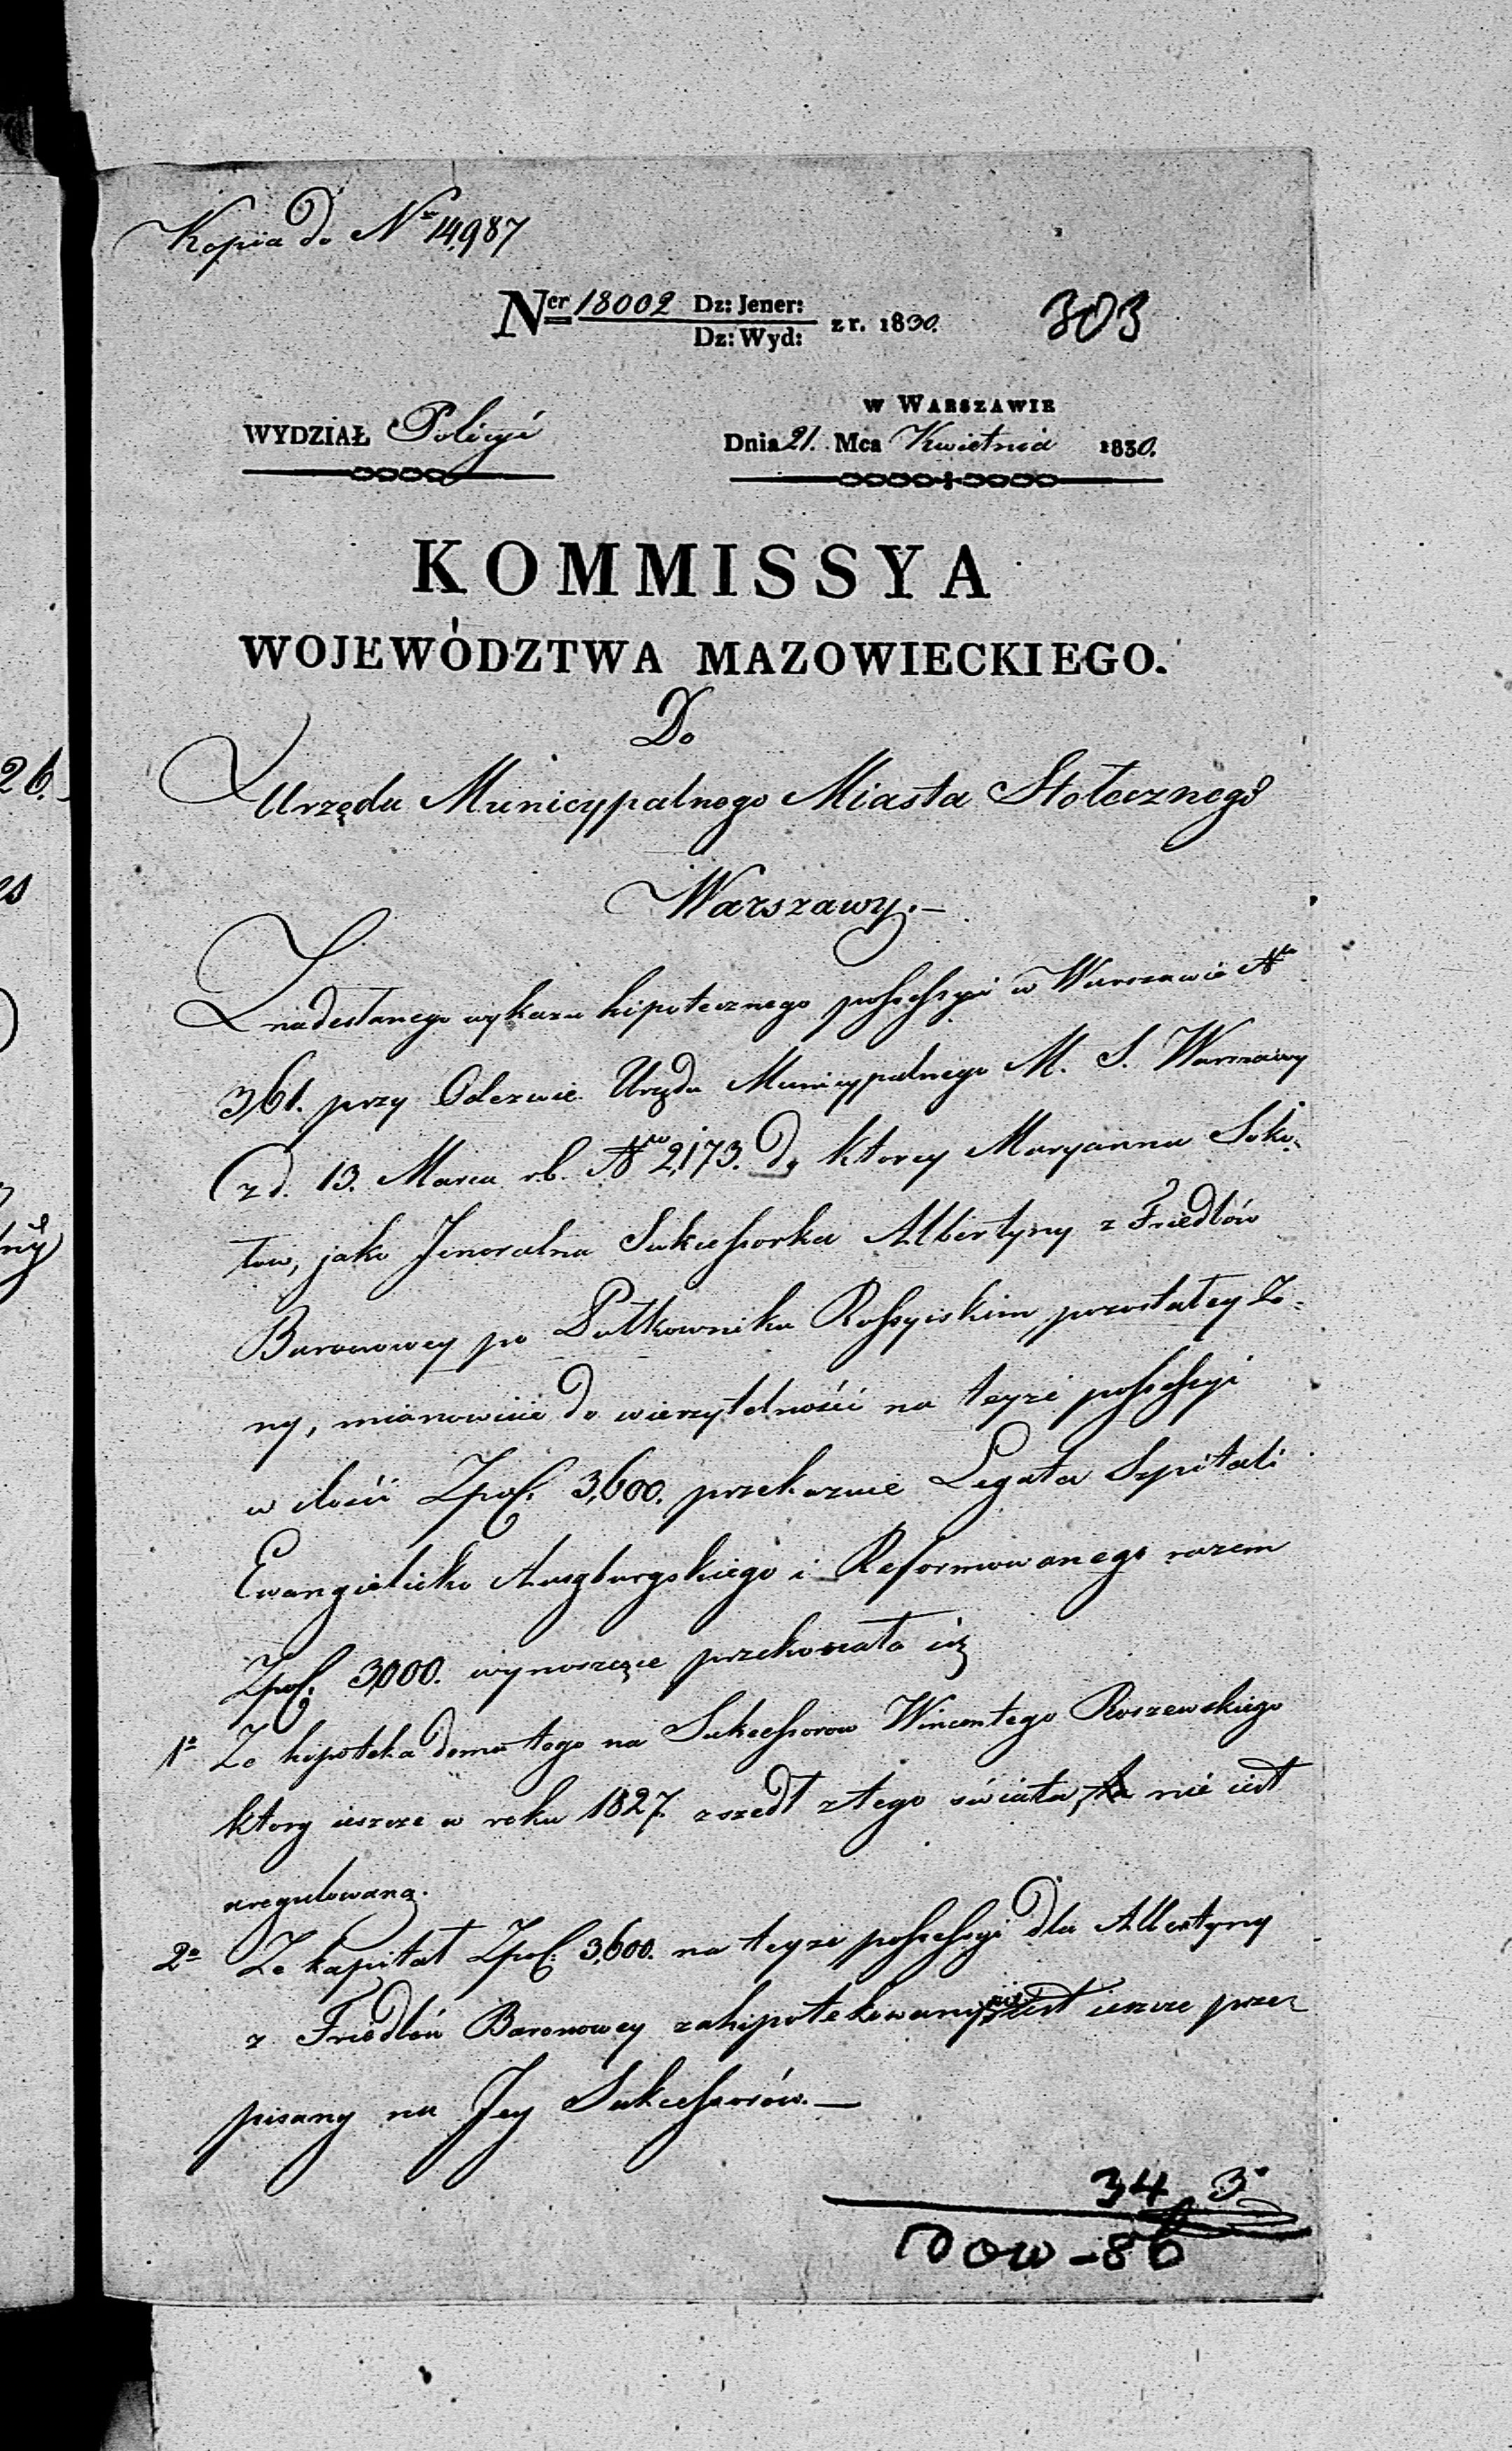 Kopia do Nr 14,987
Ner 18002 Dz: Jener:
Dz: Wyd: z r. 1830.
303
w WARSZAWIE
WYDZIAŁ Policyi
Dnia 21. Mca Kwietnia 1830.
KOMMISSYA
WOJEWÓDZTWA MAZOWIECKIEGO.
Do
Urzędu Municypalnego Miasta Stołecznego
Warszawy.—
Z nadesłanego wykazu hipotecznego possessyi w Warszawie No
361. przy Odezwie Urzędu Municypalnego M. S. Warszawy
z d. 13. Marca r.b. No 2,173. do ktorey Maryanna Soko-
łow, jako Jeneralna Sukcessorka Albertyny z Friedlów
Baronowey po Pułkowniku Rossyiskim pozostałey Żo-
ny, mianowicie do wierzytelności na teyże possessyi
w ilości Zpol: 3,600. przekazuie Legata Szpitali
Ewangielicko Auszburgskiego i Reformowanego razem
Zpol: 3,000. wynoszące przekonała się
1o Że hipoteka domu tego na Sukcessorow Wincentego Roszewskiego
ktory ieszcze w roku 1827. zszedł z tego świata, nie iest
uregulowaną.
2o Że kapitał Zpol: 3,600. na teyże possessyi dla Albertyny
z Friedlów Baronowey zahipotekowany, nie iest ieszcze prze-
pisany na Jey Sukcessorów.—
34 3
pow - 86
26.